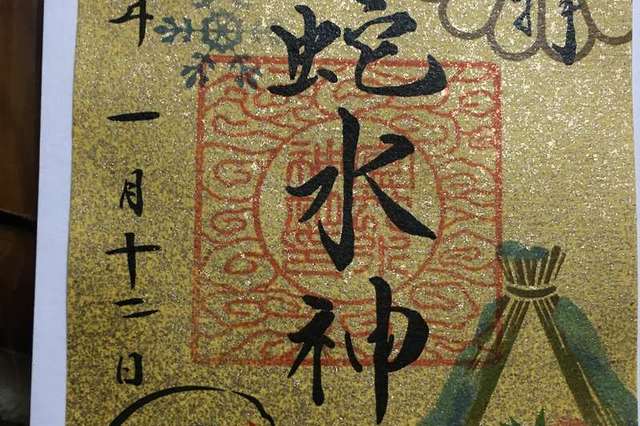 拝
蛇水神
年一月十二日